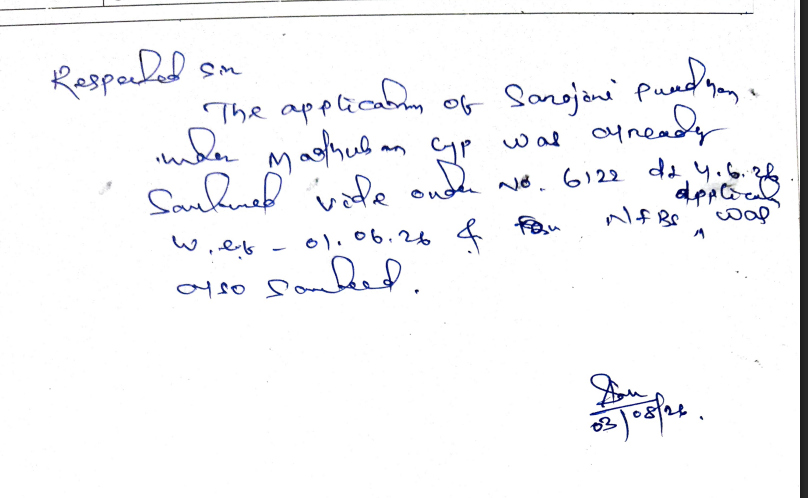 Respected Sir
The application of Sarojani Puradhan
under Madhuban Gyp was already
Sanctioned vide order No. 6122 dt 4.6.26
w.e.f - 01.06.26 & for NFBS application was
also Sanctioned.
03/08/26.